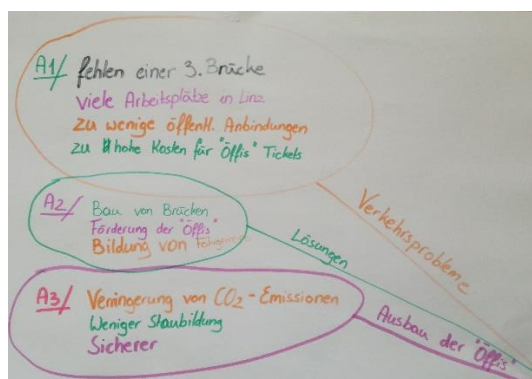 A1/ fehlen einer 3. Brücke
viele Arbeitspläze in Linz
zu wenige öffentl. Anbindungen
zu hohe Kosten für "Öffis" Tickets
Verkehrsprobleme
A2/ Bau von Brücken
Förderung der "Öffis"
Bildung von
Lösungen
A3/ Verringerung von CO₂-Emissionen
Weniger Staubildung
Sicherer
Ausbau der "Öffis"